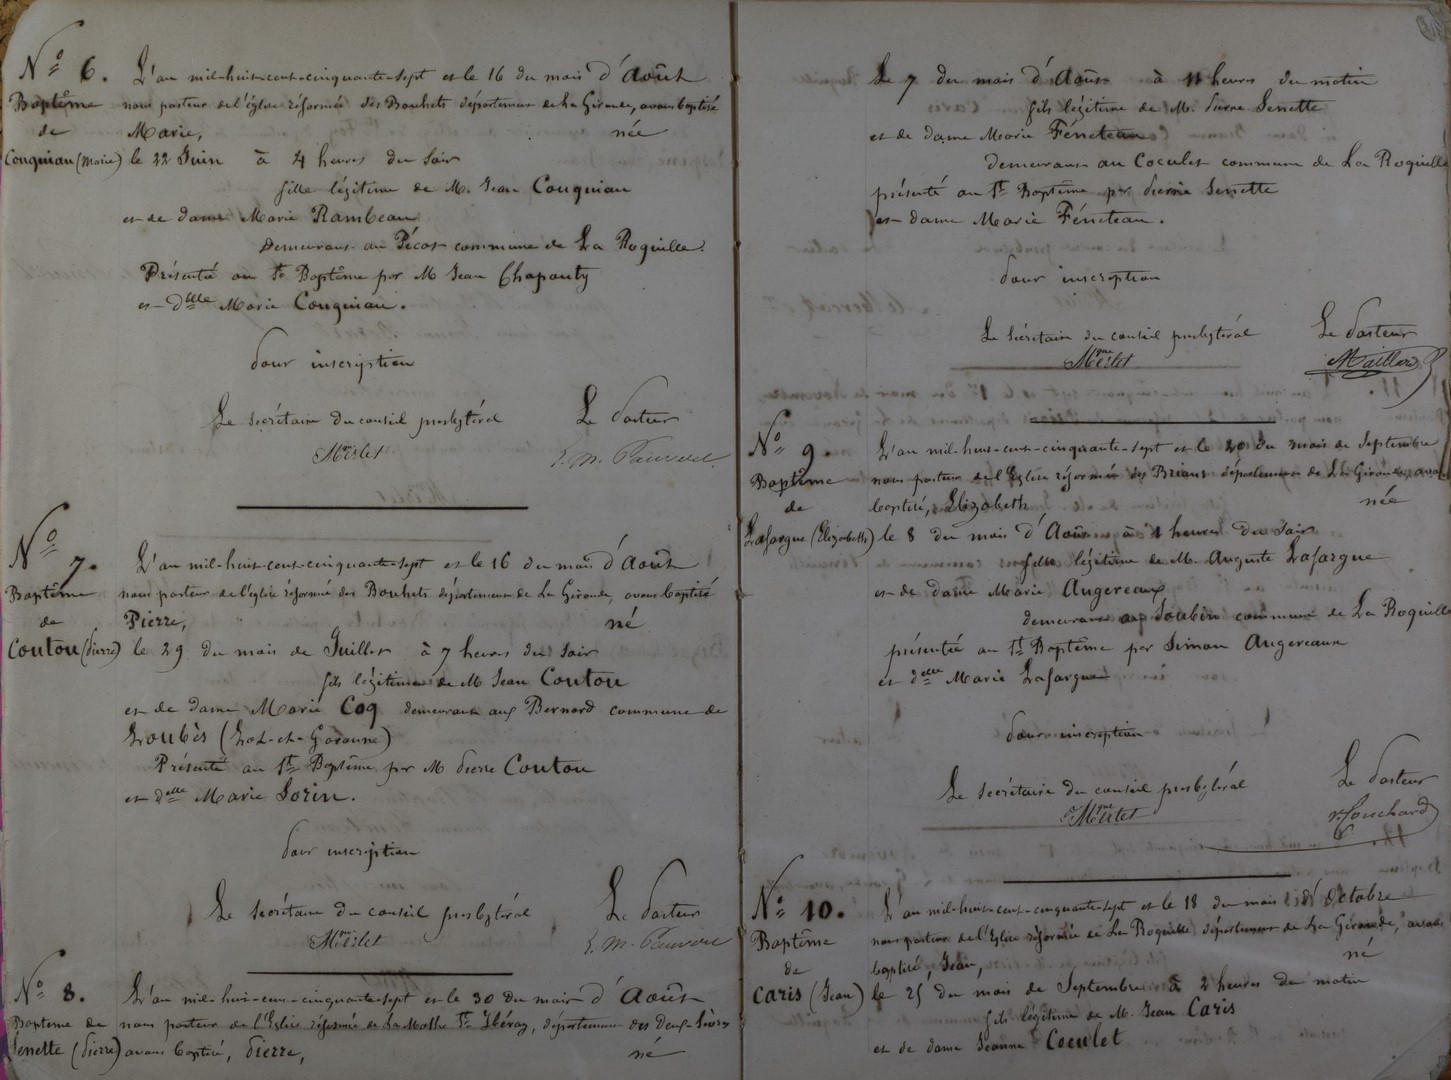 Nº 6.
Baptême
de
Couquiau (Marie)
L'an mil-huit-cent-cinquante-sept et le 16 du mois d'Août
nous pasteur de l'église réformée des Bouhets département de la Gironde, avons baptisé
Marie, née
le 22 Juin à 4 heures du soir
fille légitime de M. Jean Couquiau
et de dame Marie Rambeau
demeurant au Pécos commune de La Roquille.
Présenté au St Baptême par M Jean Chapouty
et Delle Marie Couquiau.
Pour inscription
Le secrétaire du conseil presbytéral Le Pasteur
Merlet
Nº 7.
Baptême
de
Coutou (Pierre)
L'an mil-huit-cent-cinquante-sept et le 16 du mois d'Août
nous pasteur de l'église réformée des Bouhets département de La Gironde, avons baptisé
Pierre, né
le 29 du mois de Juillet à 7 heures du soir
fils légitime de M Jean Coutou
et de dame Marie Coq demeurant aux Bernard commune de
Loubès (Lot-et-Garonne)
Présenté au St Baptême par M Pierre Coutou
et delle Marie Sorin.
Pour inscription
Le secrétaire du conseil presbytéral Le Pasteur
Merlet
Nº 8.
Bapteme de
Senette (Pierre)
L'an mil-huit-cent-cinquante-sept et le 30 du mois d'Août
nous pasteur de l'Eglise réformée de La Mothe St Héray, département des Deux-Sèvres
avons baptisé, Pierre, né
Le 7 du mois d'Août à 11 heures du matin
fils légitime de M. Pierre Senette
et de dame Marie Féneteau
demeurant au Coculet commune de La Roquille
présenté au St Baptême par Pierre Senette
et dame Marie Féneteau.
Pour inscription
Le Secrétaire du conseil presbytéral Le Pasteur
Merlet Maillard
Nº 9.
Baptême
de
Lafargue (Elizabeth)
L'an mil-huit-cent-cinquante-sept et le 20 du mois de Septembre
nous pasteur de l'Eglise réformée des Briaux département de La Gironde, avons
baptisé, Elizabeth, née
le 8 du mois d'Août à 1 heure du soir
fille légitime de M. Auguste Lafargue
et de dame Marie Augereaux
demeurant au Soubin commune de La Roquille
présentée au St Baptême par Simon Augereaux
et delle Marie Lafargue
Pour inscription
Le Secrétaire du conseil presbytéral Le Pasteur
Merlet
Nº 10.
Baptême
de
Caris (Jean)
L'an mil-huit-cent-cinquante-sept et le 18 du mois d'Octobre
nous pasteur de l'Eglise réformée de La Roquille département de La Gironde, avons
baptisé, Jean, né
le 25 du mois de Septembre à 2 heures du matin
fils légitime de M. Jean Caris
et de dame Jeanne Coculet